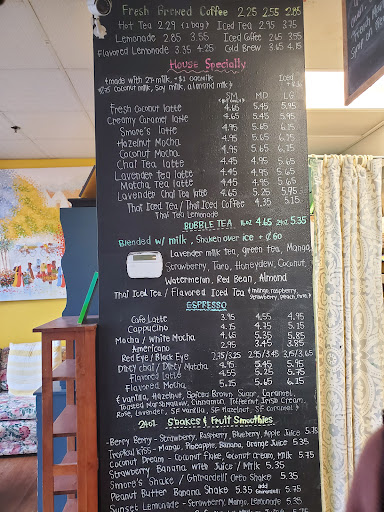 Fresh Brewed Coffee 2.25 2.55 2.85
Hot Tea 2.29 (1 bag) Iced Tea 2.95 3.75
Lemonade 2.85 3.55 Iced Coffee 2.65 3.55
Flavored Lemonade 3.35 4.25 Cold Brew 3.65 4.15
House Specialty
(made with 2% milk,
coconut milk, soy milk, almond milk)
Iced
SM MD LG
Fresh Coconut latte 4.65 5.45 5.95
Creamy Caramel latte 4.65 5.45 5.95
Smore's latte 4.95 5.65 6.15
Hazelnut Mocha 4.95 5.65 6.15
Coconut Mocha 4.95 5.65 6.15
Chai Tea latte 4.45 4.95 5.65
Lavender tea latte 4.45 4.95 5.65
Matcha Tea latte 4.45 4.95 5.65
Lavender Chai Tea latte 4.65 5.25 5.95
Thai Iced Tea / Thai Iced Coffee 4.35 5.15
Thai Tea Lemonade
BUBBLE TEA 16oz 4.65 24oz 5.35
Blended w/ milk, Shaken over ice + ¢60
Lavender milk tea, green tea, Mango,
Strawberry, Taro, Honeydew, Coconut,
Watermelon, Red Bean, Almond
Thai Iced Tea / Flavored Iced Tea (mango, raspberry,
strawberry, peach,
ESPRESSO
Cafe Latte 3.95 4.55 4.95
Cappucino 4.15 4.75 5.15
Mocha / White Mocha 4.65 5.35 5.85
Americano 2.95 3.45 3.85
Red Eye / Black Eye 2.75/3.25 2.95/3.45 3.15/3.65
Dirty Chai / Dirty Matcha 4.95 5.75
Flavored Latte 4.55 5.25 5.75
Flavored Mocha 5.25 5.65 6.15
(Vanilla, Hazelnut, Spiced Brown Sugar, Caramel
Toasted Marshmallow, Cinnamon, Irish Cream
Rose, Lavender, SF Vanilla, SF Hazelnut, SF Caramel)
24oz Shakes & Fruit Smoothies
- Berry Berry - Strawberry, Raspberry, Blueberry, Apple Juice 5.75
Tropical Kiss - Mango, Pineapple, Banana, Orange Juice 5.35
Coconut Dream - Coconut Flake, Coconut Cream, Milk 5.75
Strawberry Banana with Juice / Milk 5.35
Smore's Shake / Ghirardelli Oreo Shake 5.35
Peanut Butter Banana Shake 5.35 5.75
Sunset Lemonade - Strawberry, Mango, Lemonade